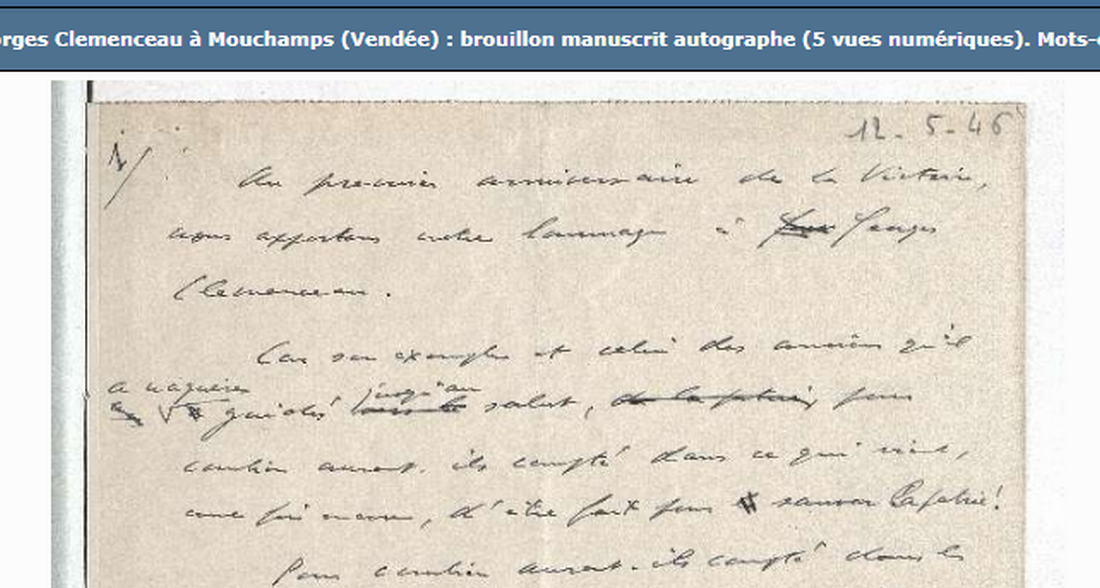 orges Clemenceau à Mouchamps (Vendée) : brouillon manuscrit autographe (5 vues numériques). Mots-
12-5-46
1/
Au premier anniversaire de la Victoire,
nous apportons notre hommage à Georges
Clemenceau.
Car son exemple et celui des anciens qu'il
a naguère jusqu'au
guidés salut, de la patrie, pour
combien auront-ils compté dans ce qui vient,
une fois encore, d'être fait pour sauver la patrie!
Pour combien auront-ils compté dans